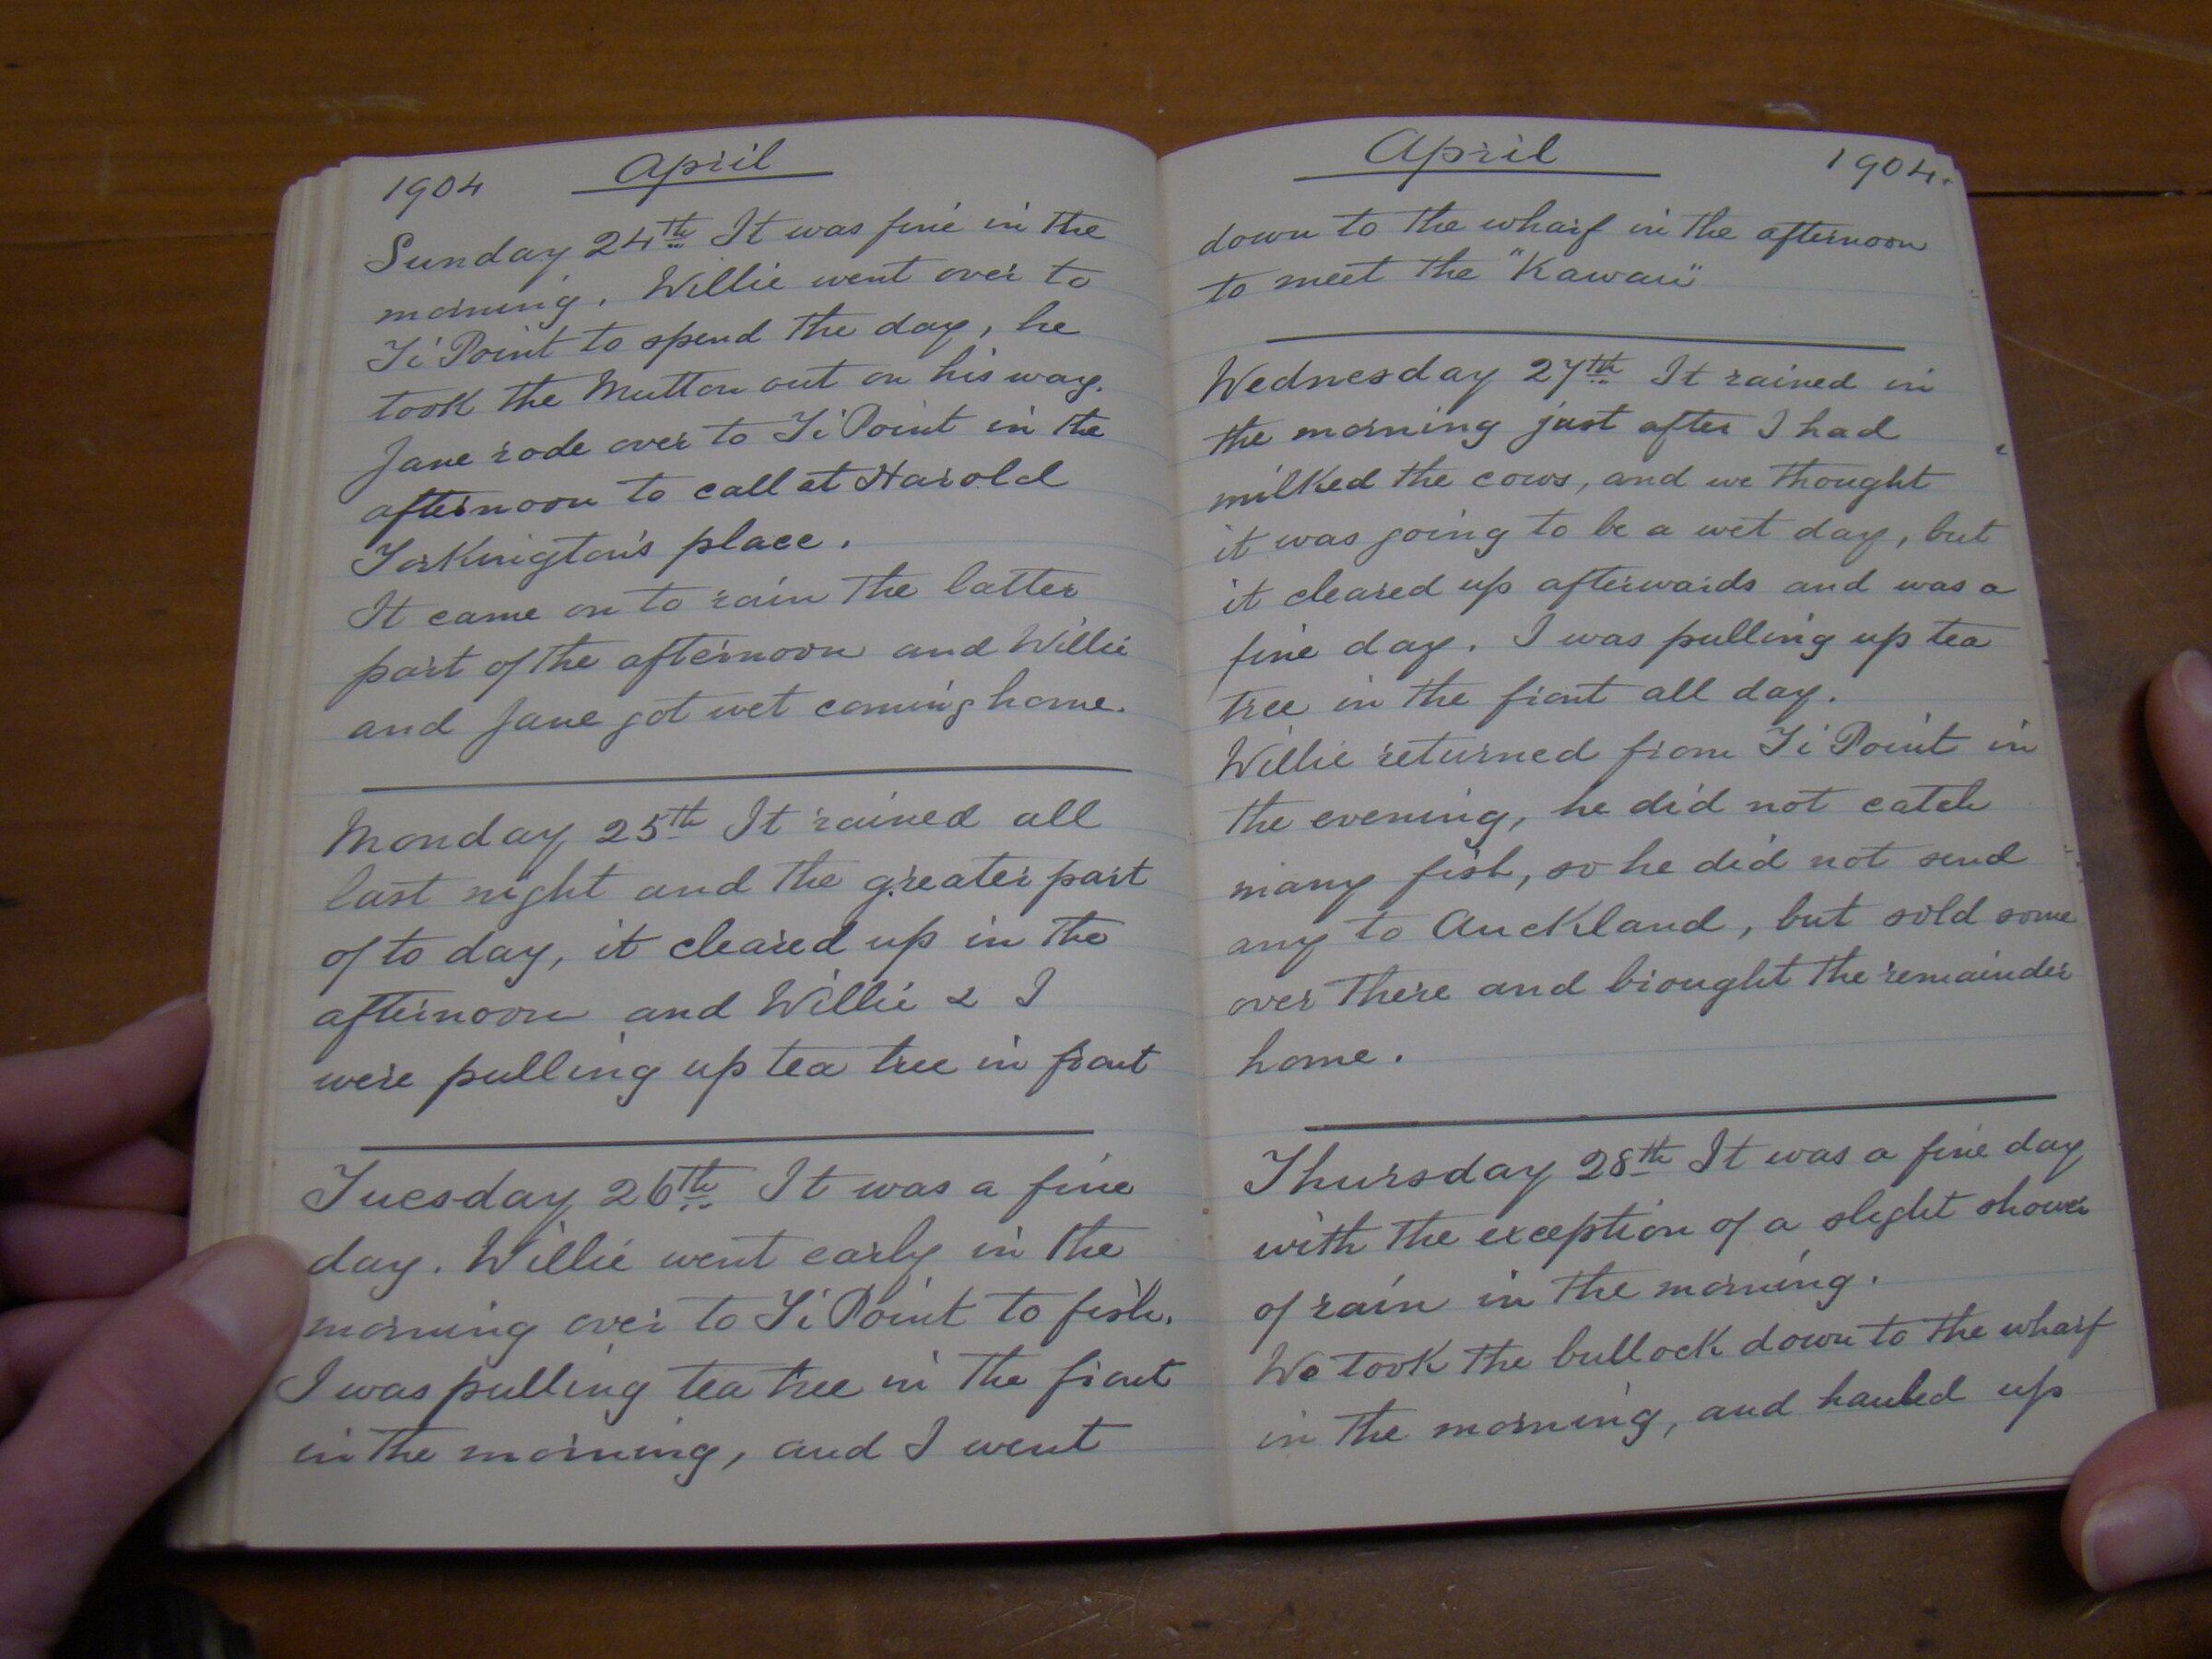 1904 April
Sunday 24th It was fine in the
morning. Willie went over to
Ti Point to spend the day, he
took the Mutton out on his way.
Jane rode over to Ti Point in the
afternoon to call at Harold
Torkington's place.
It came on to rain the latter
part of the afternoon and Willie
and Jane got wet coming home.
Monday 25th It rained all
last night and the greater part
of to day, it cleared up in the
afternoon and Willie & I
were pulling up tea tree in front
Tuesday 26th It was a fine
day. Willie went early in the
morning over to Ti Point to fish.
I was pulling tea tree in the front
in the morning, and I went
April 1904.
down to the wharf in the afternoon
to meet the "Kawau"
Wednesday 27th It rained in
the morning just after I had
milked the cows, and we thought
it was going to be a wet day, but
it cleared up afterwards and was a
fine day. I was pulling up tea
tree in the front all day.
Willie returned from Ti Point in
the evening, he did not catch
many fish, so he did not send
any to Auckland, but sold some
over there and brought the remainder
home.
Thursday 28th It was a fine day
with the exception of a slight shower
of rain in the morning.
We took the bullock down to the wharf
in the morning, and hauled up